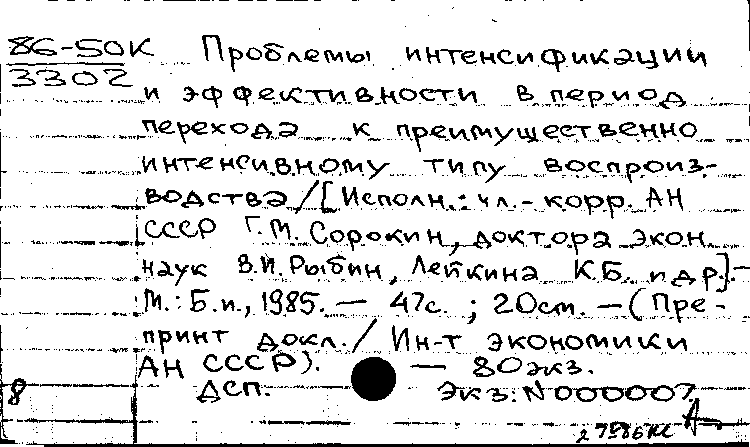 86-50К Проблемы интенсификации
3302 и эффективности в период
перехода к преимущественно
интенсивному типу воспроиз-
водства/[Исполн.: чл.-корр. АН
СССР Г.М. Сорокин, доктора экон.
наук В.И. Рыбин, Лейкина К.Б. и др.].-
М.: Б.и., 1985. — 47с. ; 20см. —(Пре-
принт докл./ Ин-т экономики
АН СССР). — 80экз.
8 ДСП. Экз: N000007